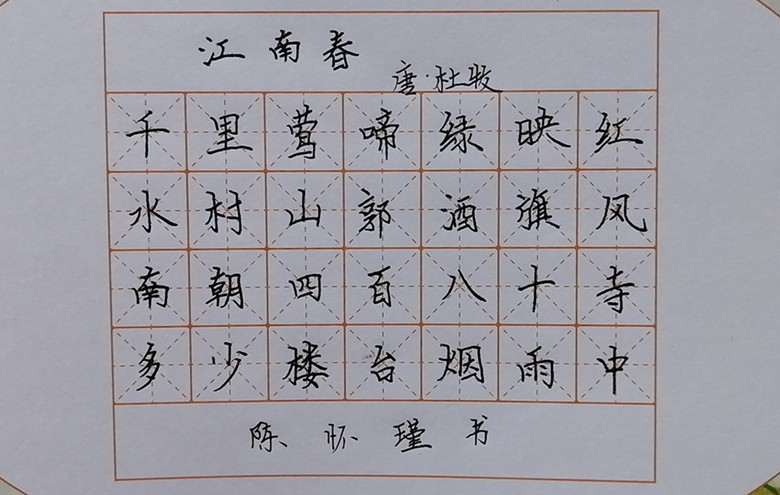 江南春
唐·杜牧
千里莺啼绿映红
水村山郭酒旗风
南朝四百八十寺
多少楼台烟雨中
陈怀瑾书